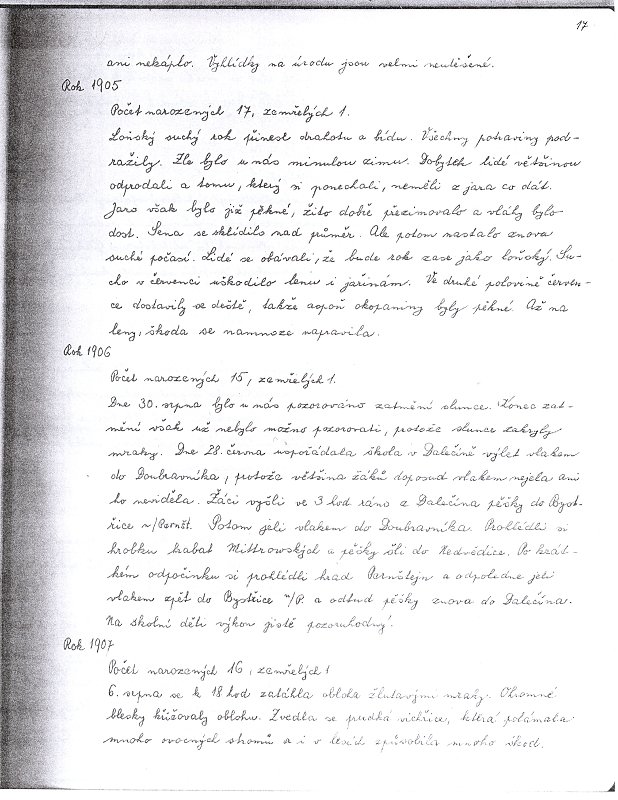 17
ani nekáplo. Vyhlídky na úrodu jsou velmi neutěšené.
Rok 1905
Počet narozených 17, zemřelých 1.
Loňský suchý rok přinesl drahotu a bídu. Všechny potraviny pod-
ražily. Zle bylo u nás minulou zimu. Dobytek lidé většinou
odprodali a tomu, který si ponechali, neměli z jara co dát.
Jaro však bylo již pěkné, žito dobře přezimovalo a vláhy bylo
dost. Sena se sklidilo nad průměr. Ale potom nastalo znova
suché počasí. Lidé se obávali, že bude rok zase jako loňský. Su-
cho v červenci uškodilo lenu i jařinám. Ve druhé polovině červen-
ce dostavily se deště, takže aspoň okopaniny byly pěkné. Až na
leny, škoda se namnoze napravila.
Rok 1906
Počet narozených 15, zemřelých 1.
Dne 30. srpna bylo u nás pozorováno zatmění slunce. Konec zat-
mění však už nebylo možno pozorovati, protože slunce zakryly
mraky. Dne 28. června uspořádala škola v Dalečíně výlet vlakem
do Doubravníka, protože většina žáků doposud vlakem nejela ani
ho neviděla. Žáci vyšli ve 3 hod ráno z Dalečína pěšky do Byst-
řice n/Pernšt. Potom jeli vlakem do Doubravníka. Prohlédli si
hrobku hrabat Mittrowských a pěšky šli do Nedvědice. Po krát-
kém odpočinku si prohlédli hrad Pernštejn a odpoledne jeli
vlakem zpět do Bystřice n/P. a odtud pěšky znova do Dalečína.
Na školní děti výkon jistě pozoruhodný.
Rok 1907
Počet narozených 16, zemřelých 1
6. srpna se k 18 hod zatáhla obloha žlutavými mraky. Ohromné
blesky křižovaly oblohu. Zvedla se prudká vichřice, která polámala
mnoho ovocných stromů a i v lesích způsobila mnoho škod.